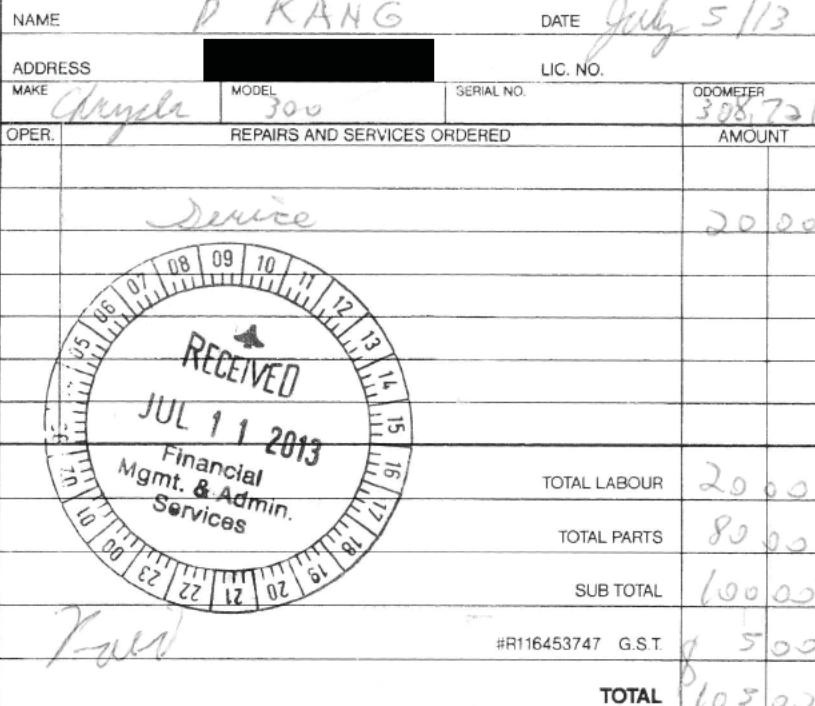 NAME D KANG DATE July 5/13
ADDRESS LIC. NO.
MAKE Chrysler MODEL 300 SERIAL NO. ODOMETER 308,721
OPER. REPAIRS AND SERVICES ORDERED AMOUNT
Service 20 00
05 06 07 08 09 10 11 12 13 14 15 16 17 18 19 20 21 22 23 00 01 02
RECEIVED
JUL 11 2013
Financial
Mgmt. & Admin.
Services
TOTAL LABOUR 20 00
TOTAL PARTS 80 00
SUB TOTAL 100 00
Paid #R116453747 G.S.T. 5 00
TOTAL $105 00